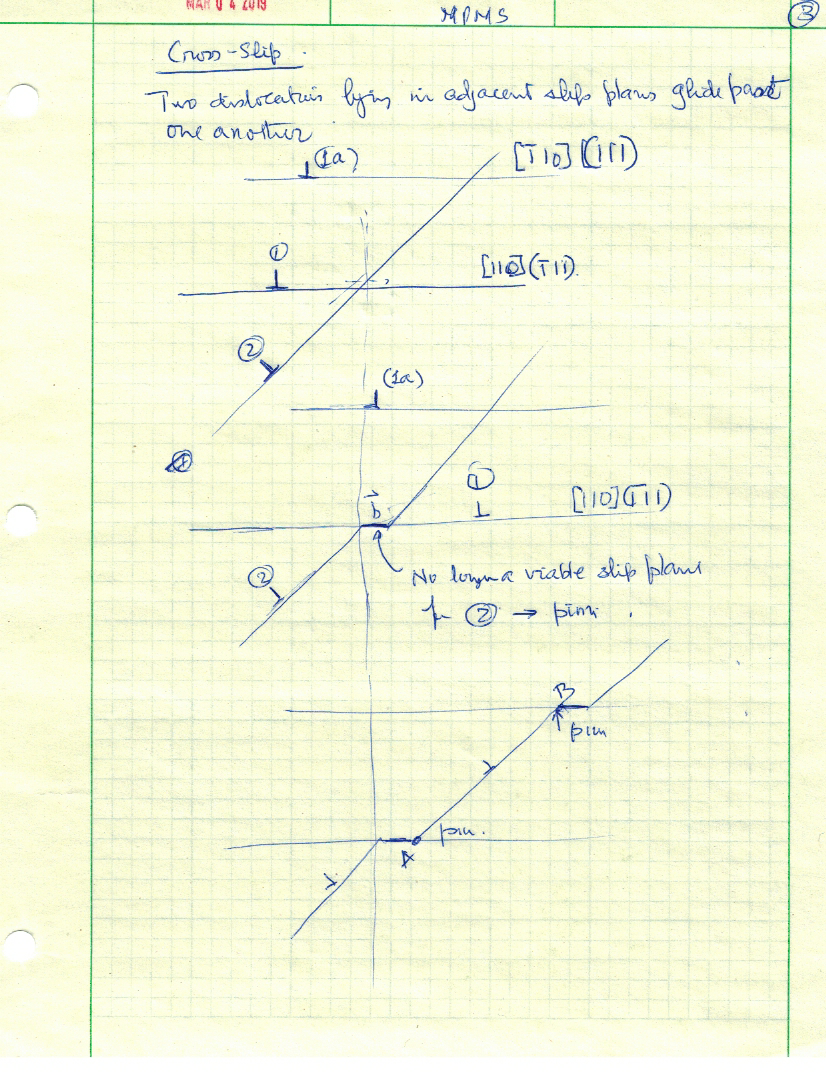 MAR 04 2019
MPMS
3
Cross-Slip.
Two dislocations lying in adjacent slip plans glide past
one another
(1a)
[1̄10] (111)
①
[110](1̄11).
②
(1a)
①
b⃗
[110](1̄11)
②
No longer a viable slip plans
for ② → pinn.
B
pinn
pin.
A